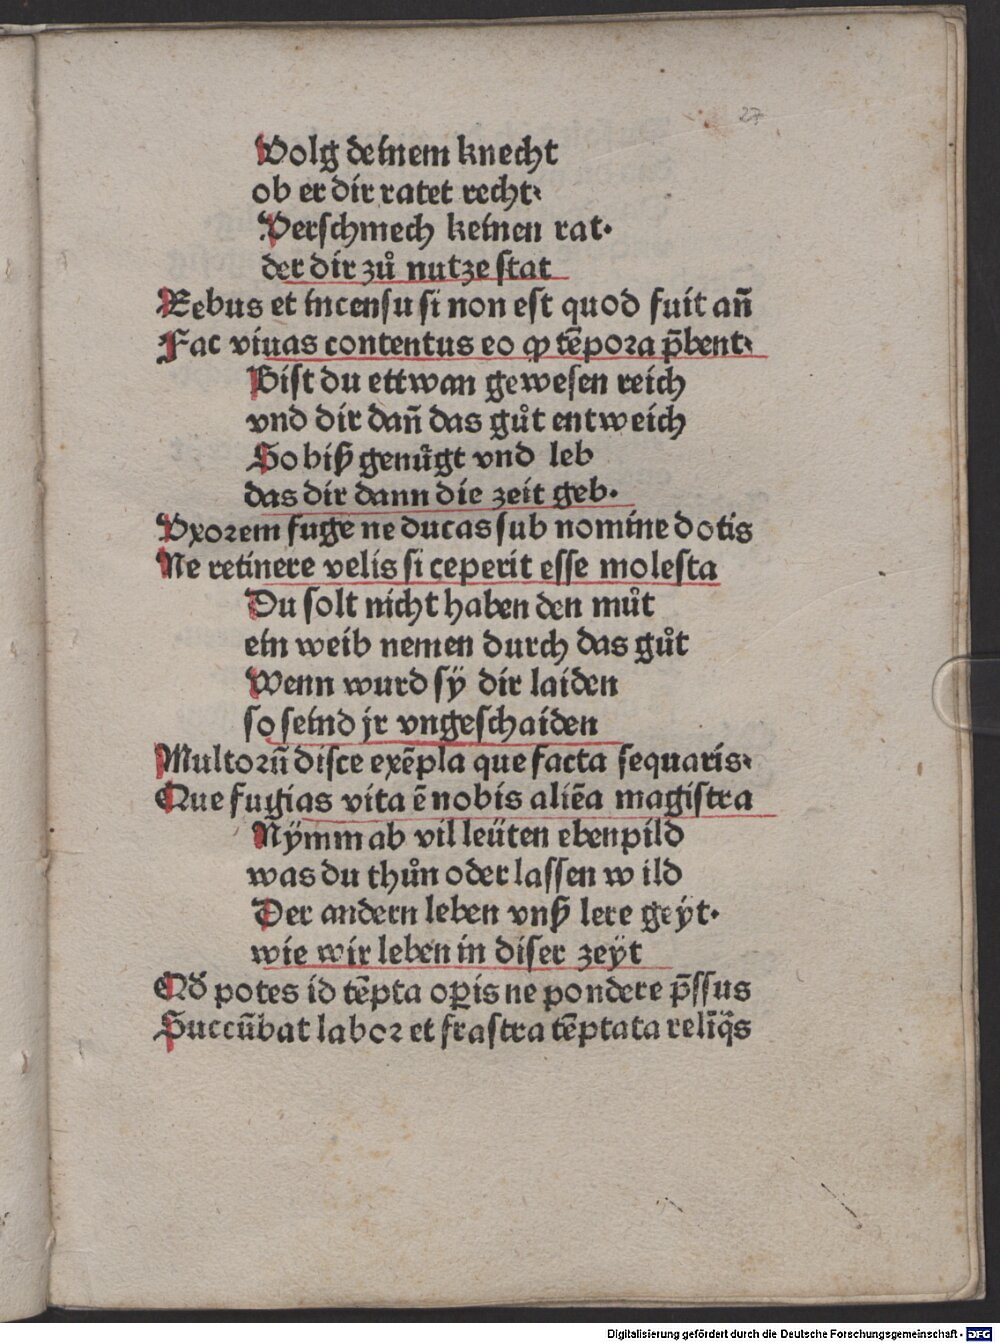 27
Volg deinem knecht
ob er dir ratet recht⸗
Verschmech keinen rat·
der dir zů nutze stat
Rebus et in censu si non est quod fuit an̄
Fac viuas contentus eo ꝙ tēpora p̄bent⸗
Bist du ettwan gewesen reich
vnd dir dan̄ das gůt entweich
So biß genůgt vnd leb
das dir dann die zeit geb·
Vxorem fuge ne ducas sub nomine dotis
Ne retinere velis si ceperit esse molesta
Du solt nicht haben den můt
ein weib nemen durch das gůt
Wenn wurd sÿ dir laiden
so seind jr vngeschaiden
Multorū disce exēpla que facta sequaris⸗
Que fugias vita ē nobis aliēa magistra
Nÿmm ab vil leüten ebenpild
was du thůn oder lassen wild
Der andern leben vnß lere geÿt·
wie wir leben in diser zeÿt
Qd potes id tēpta oꝑis ne pondere p̄ssus
Succūbat labor et frastra tēptata reliq̄s
Digitalisierung gefördert durch die Deutsche Forschungsgemeinschaft - DFG